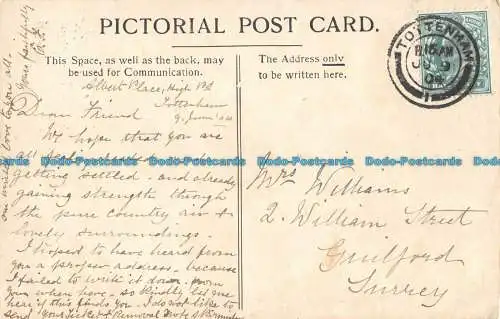 PICTORIAL POST CARD.
This Space, as well as the back, may
be used for Communication.
The Address only
to be written here.
TOTTENHAM
8.15 AM
JU 9
04
Albert Place, High Rd
Tottenham
9. June 1904
Dear Friend
We hope that you are
all safe
getting settled - and already
gaining strength through
the pure country air &
lovely surroundings.
I hoped to have heard from
you a proper address - because
I failed to write it down from
you when here - so kindly let me
hear if this finds you. I do not like to
send your ticket & Removal
with love to you all.
Yours faithfully
Mrs Williams
2. William Street
Guilford
Surrey
Podo-Postcards.co.uk